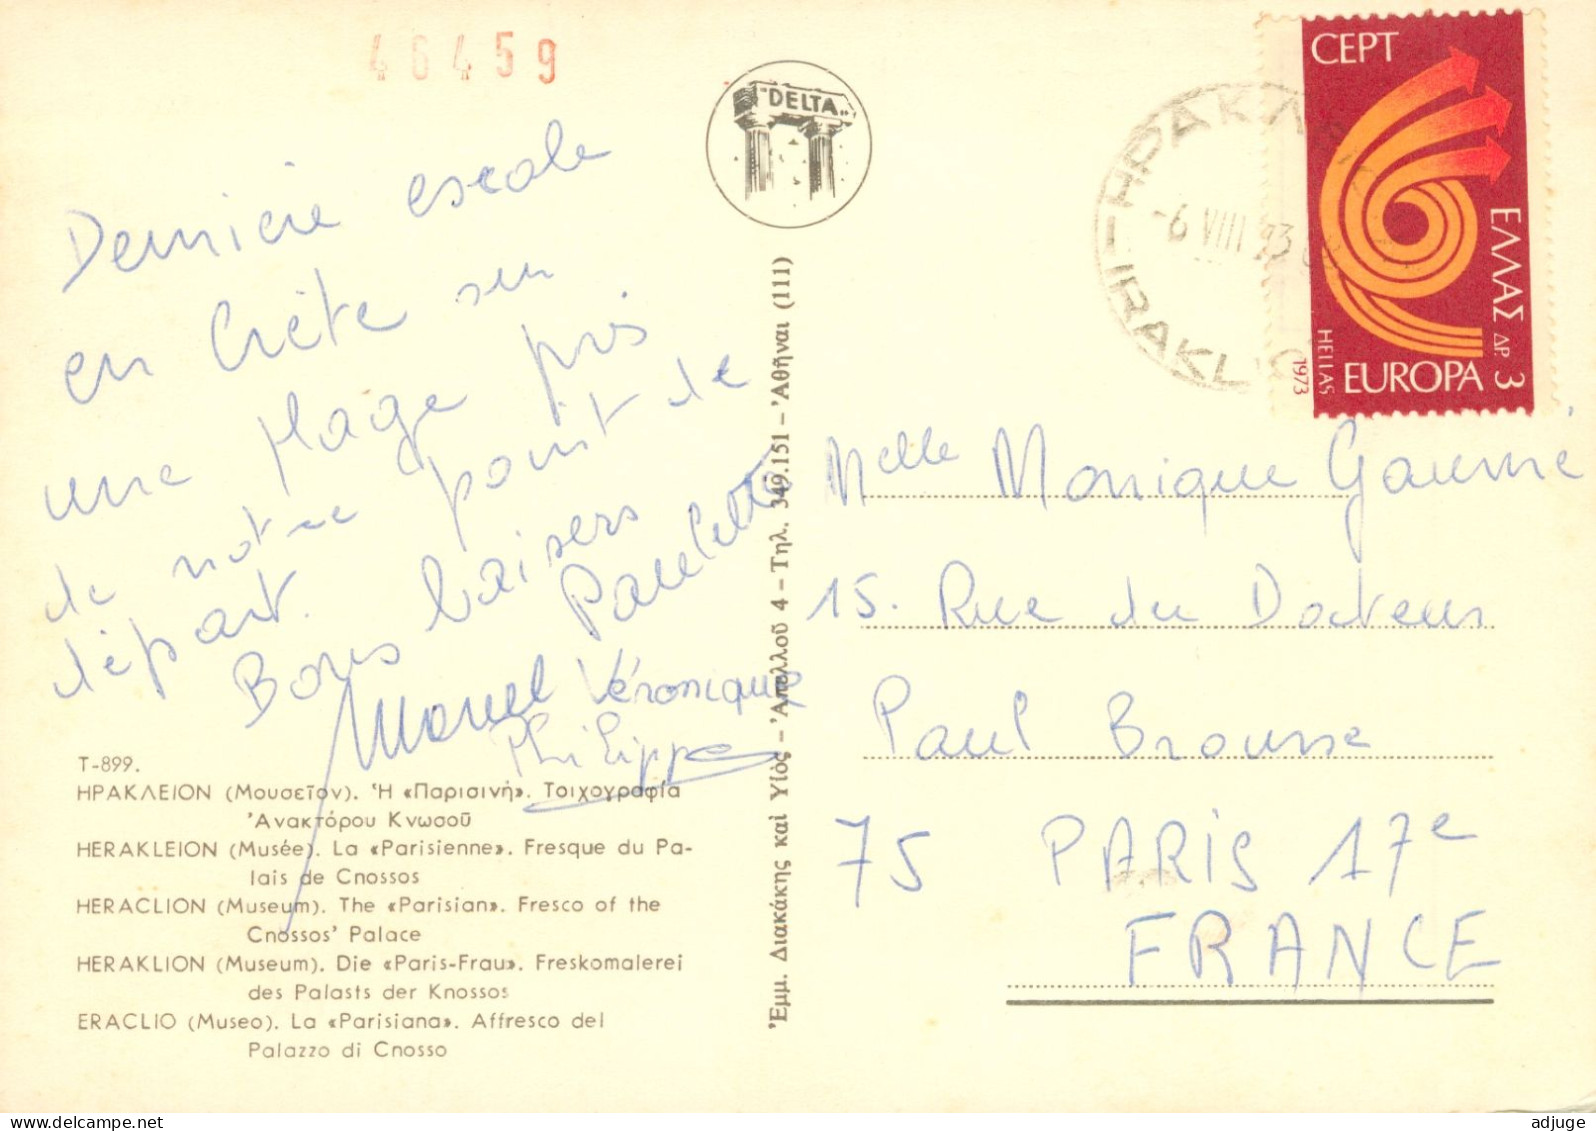 46459
"DELTA"
Dernière escale
en Crète sur
une plage près
de notre point de
départ.
Bons baisers
Paulette
Marcel Véronique
Philippe
T-899.
ΗΡΑΚΛΕΙΟΝ (Μουσεῖον). Ἡ «Παρισινή». Τοιχογραφία
Ἀνακτόρου Κνωσοῦ
HERAKLEION (Musée). La «Parisienne». Fresque du Pa-
lais de Cnossos
HERACLION (Museum). The «Parisian». Fresco of the
Cnossos' Palace
HERAKLION (Museum). Die «Paris-Frau». Freskomalerei
des Palasts der Knossos
ERACLIO (Museo). La «Parisiana». Affresco del
Palazzo di Cnosso
Ἐμμ. Διακάκης καὶ Υἱός – Ἀπελλοῦ 4 – Τηλ. 349.151 – Ἀθῆναι (111)
-6 VIII 73
IRAKLIO
CEPT
ΕΛΛΑΣ ΔΡ. 3
HELLAS
EUROPA
1973
Melle Monique Gaumé
15. Rue du Docteur
Paul Brousse
75 PARIS 17e
FRANCE
adjuge
www.delcampe.net